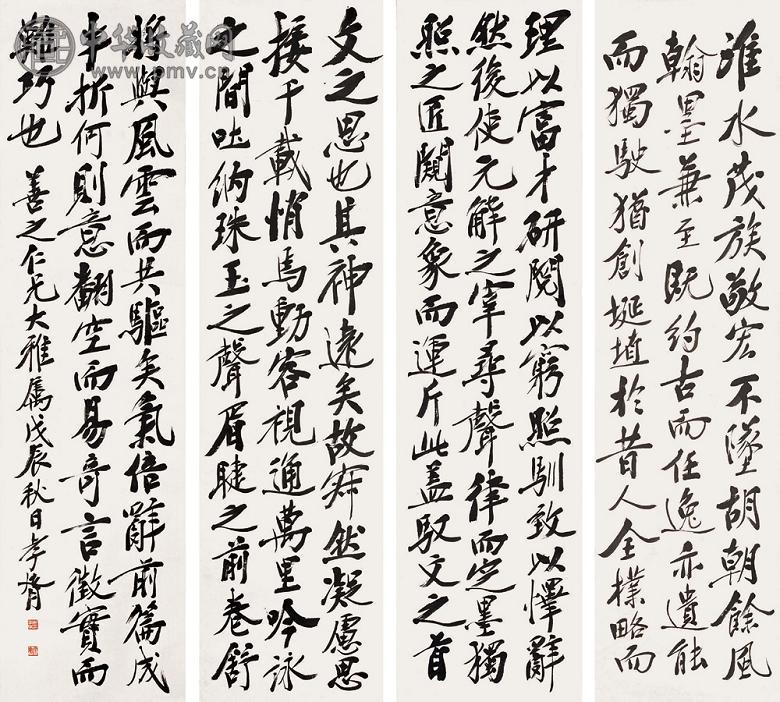 淮水茂族敬宏不墜胡朝餘風
翰墨兼至既約古而任逸亦遺能
而獨駛猶創埏埴於昔人全樸略而
理以富才研閱以窮照馴致以懌辭
然後使元解之宰尋聲律而定墨獨
照之匠闚意象而運斤此蓋馭文之首
文之思也其神遠矣故寂然凝慮思
接千載悄焉動容視通萬里吟詠
之間吐納珠玉之聲眉睫之前卷舒
將與風雲而共驅矣氣倍辭前篇成
半折何則意翻空而易奇言徵實而
難巧也 善之仁兄大雅屬戊辰秋日孝胥
中华收藏网
www.pmv.cn